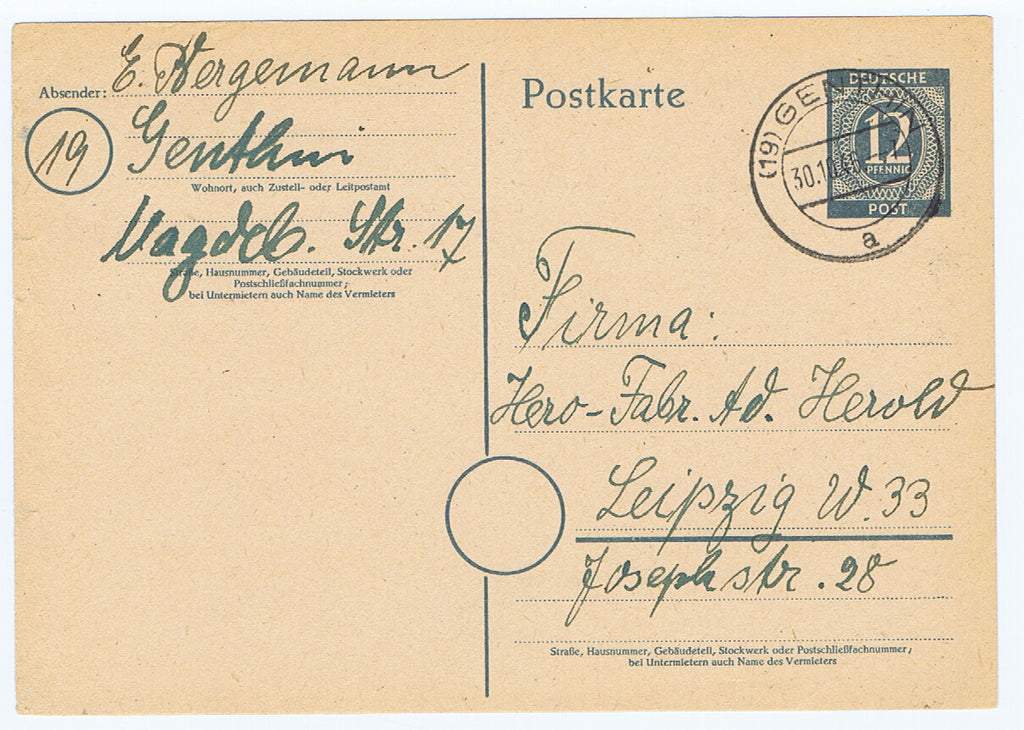 Absender: E. Wergemann
19 Genthin
Wohnort, auch Zustell- oder Leitpostamt
Magdeb. Str. 17
Straße, Hausnummer, Gebäudeteil, Stockwerk oder
Postschließfachnummer;
bei Untermietern auch Name des Vermieters
Postkarte
DEUTSCHE
12
PFENNIG
POST
(19) GENTHIN
30.10.
a
Firma:
Hero-Fabr. Ad. Herold
Leipzig W. 33
Josephstr. 28
Straße, Hausnummer, Gebäudeteil, Stockwerk oder Postschließfachnummer;
bei Untermietern auch Name des Vermieters